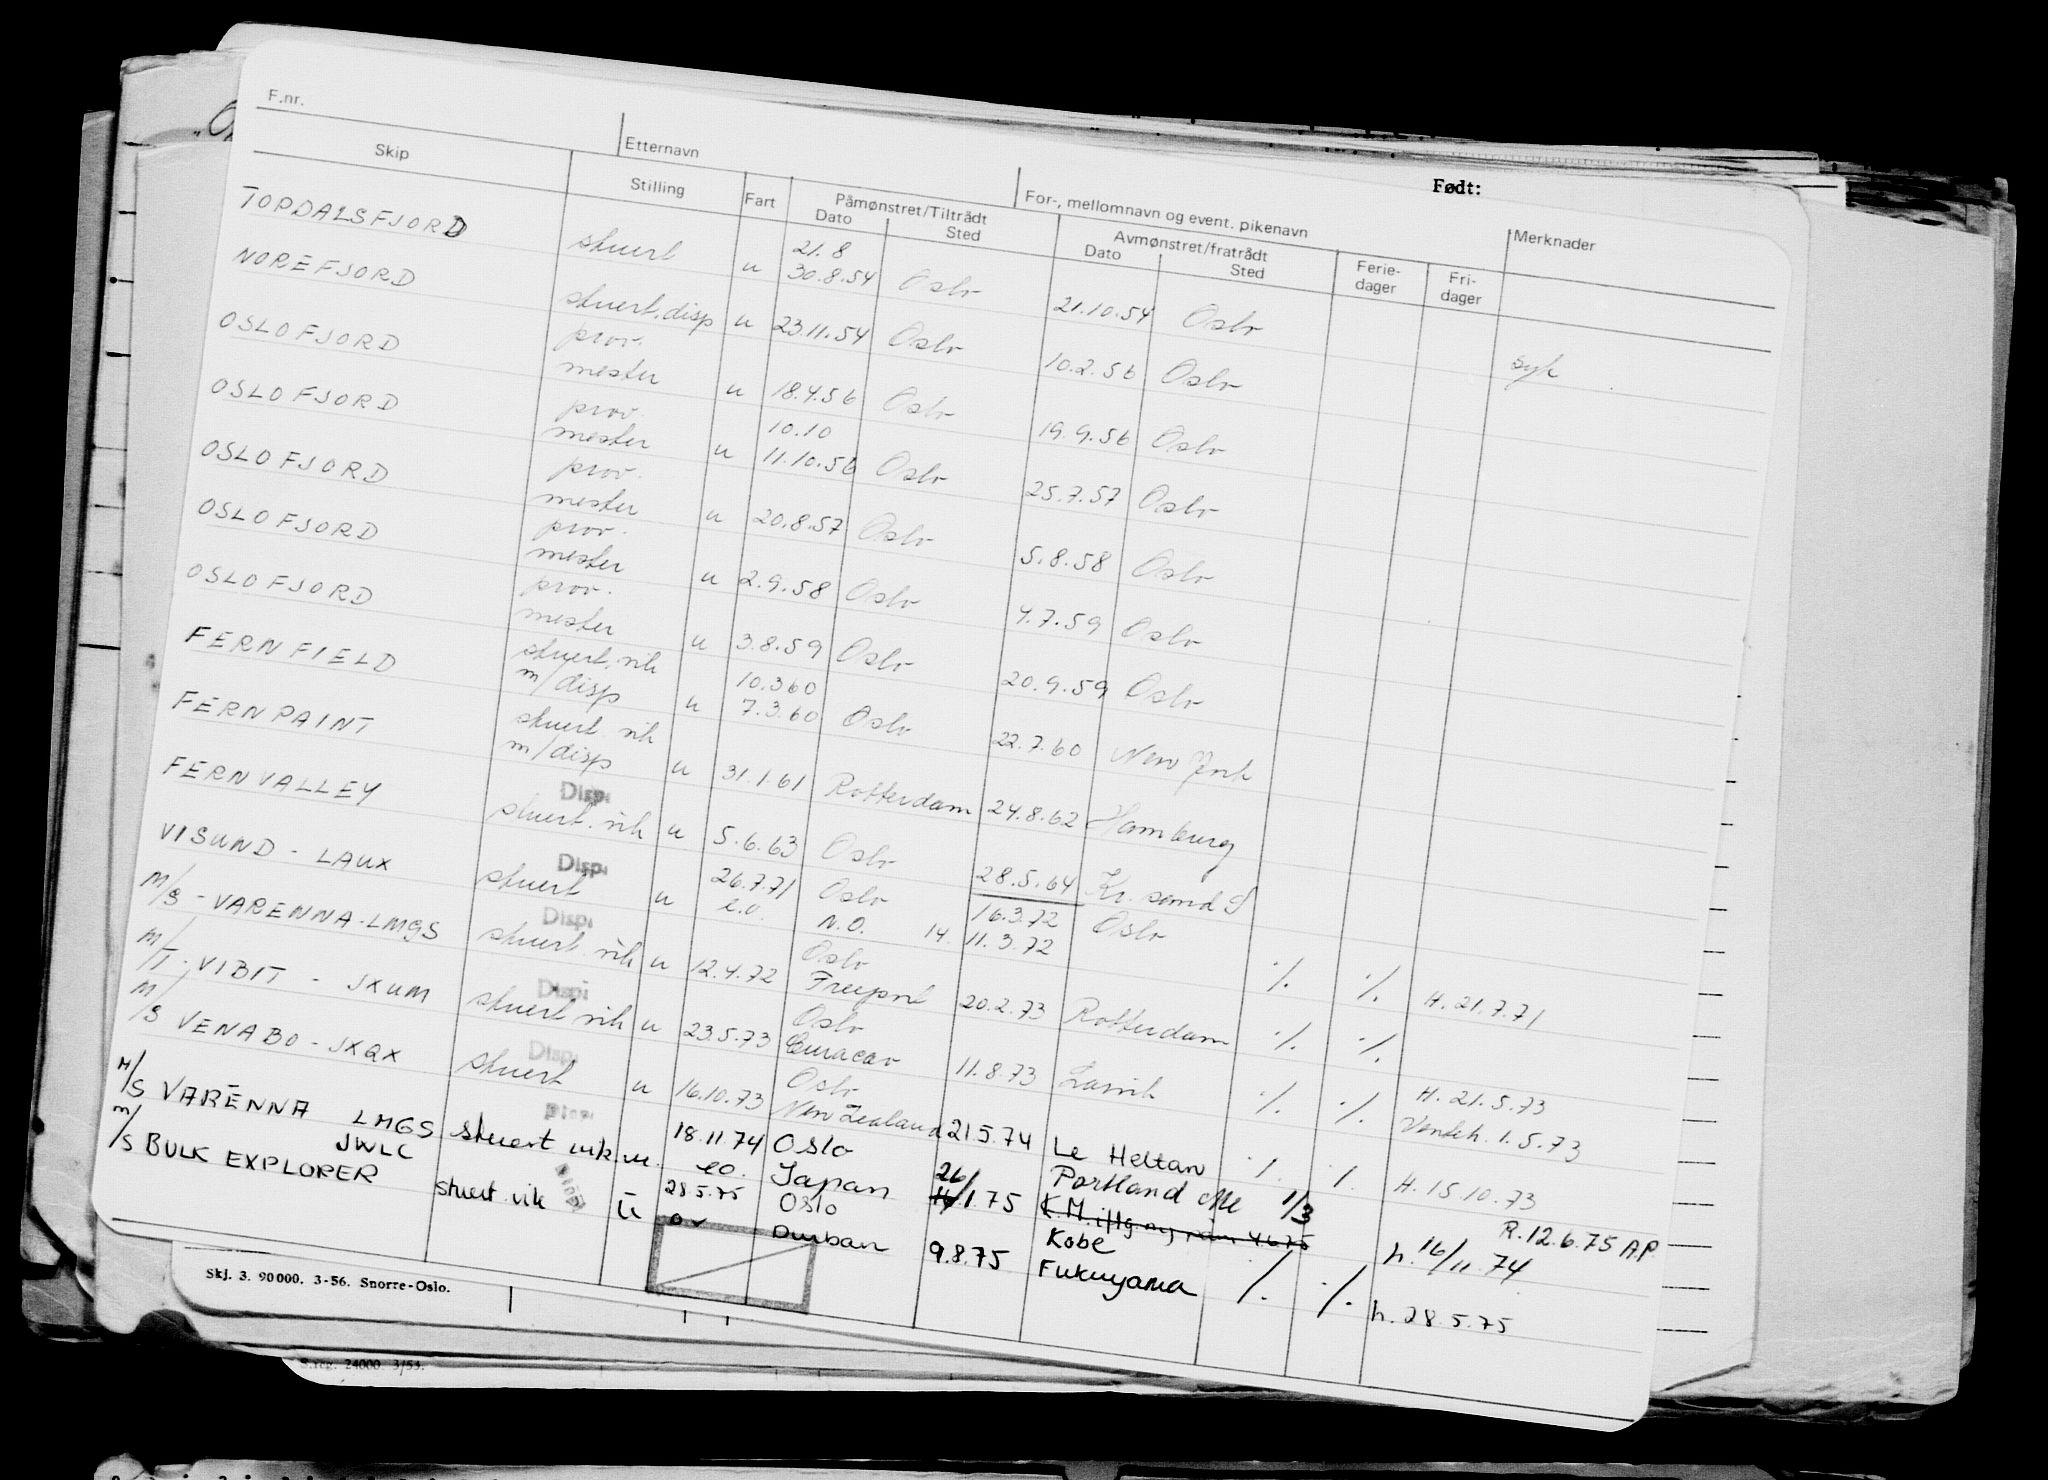 F.nr. Etternavn For-, mellomnavn og event. pikenavn Født:
Skip Stilling Fart Påmønstret/Tiltrådt Dato Sted Avmønstret/fratrådt Dato Sted Ferie-dager Fri-dager Merknader
TOPDALSFJORD stuert u 21.8 30.8.54 Oslo 21.10.54 Oslo syk
NOREFJORD stuert.disp u 23.11.54 Oslo 10.2.56 Oslo
OSLOFJORD prov. mester u 18.4.56 Oslo 19.9.56 Oslo
OSLOFJORD prov. mester u 10.10 11.10.56 Oslo 25.7.57 Oslo
OSLOFJORD prov. mester u 20.8.57 Oslo 5.8.58 Oslo
OSLOFJORD prov. mester u 2.9.58 Oslo 4.7.59 Oslo
OSLOFJORD prov. mester u 3.8.59 Oslo 20.9.59 Oslo
FERNFIELD stuert.vik m/disp u 10.3.60 7.3.60 Oslo 22.7.60 New York
FERNPAINT stuert vik m/disp u 31.1.61 Rotterdam 24.8.62 Hamburg
FERNVALLEY Disp. stuert.vik u 5.6.63 Oslo 28.5.64 Kr.sand S
VISUND - LAUX Disp. stuert u 26.7.71 e.o. Oslo N.O. 16.3.72 14. 11.3.72 Oslo ./. ./. H. 21.7.71
M/S - VARENNA - LMGS Disp. stuert vik u 12.4.72 Oslo Freeport 20.2.73 Rotterdam ./. ./.
M/T - VIBIT - JXUM Disp. stuert vik u 23.5.73 Oslo Curacao 11.8.73 Larvik ./. ./. H. 21.5.73 Venteh. 1.5.73
M/S VENABO - JXQX Disp. stuert u 16.10.73 Oslo New Zealand 21.5.74 Le ./. ./. H. 15.10.73
M/S VARENNA LMGS Disp. stuert vik. u. 18.11.74 eo. Oslo Japan 26/1.75 Portland 1/3 Kobe R. 12.6.75 A.P. h. 16/11.74
M/S BULK EXPLORER JWLC Disp. stuert vik u 28.5.75 Oslo Durban 9.8.75 Fukuyama ./. ./. h. 28.5.75
Skj. 3. 90000. 3-56. Snorre-Oslo.
24000 3/53.